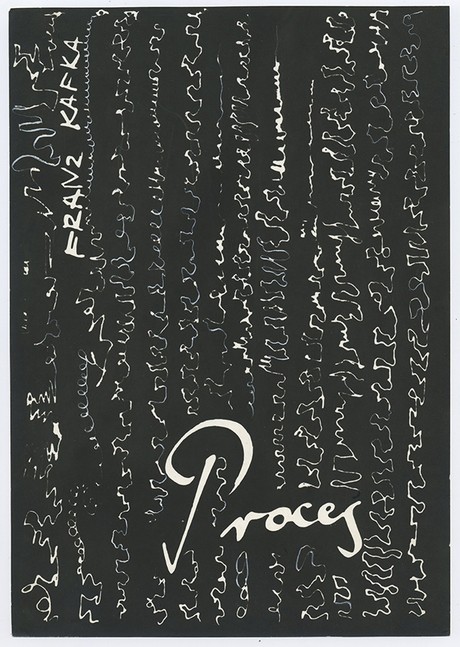 FRANZ KAFKA
Proces